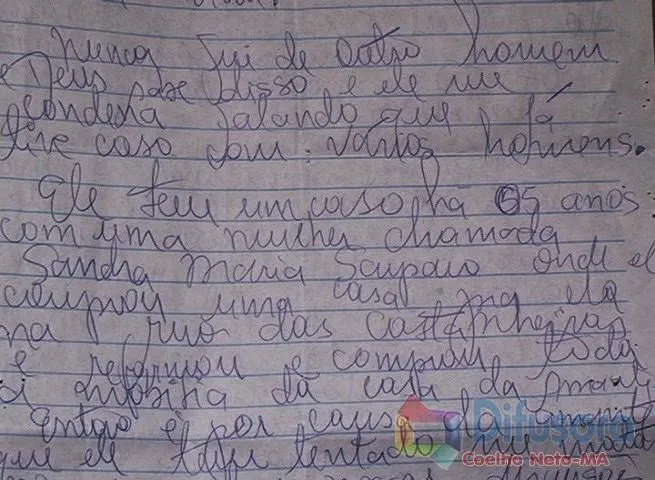 nunca fui de outro homem
e Deus sabe disso e ele me
condena falando que já
tive caso com varios homens.
Ele tem um caso há 05 anos
com uma mulher chamada
Sandra Maria Sampaio onde el
comprou uma casa pra ela
na rua das castanheiras
e reformou e comprou toda
a mobilia da casa da amante
então é por causa da amante
que ele tem tentado me mata
Difusora
Coelho Neto-MA